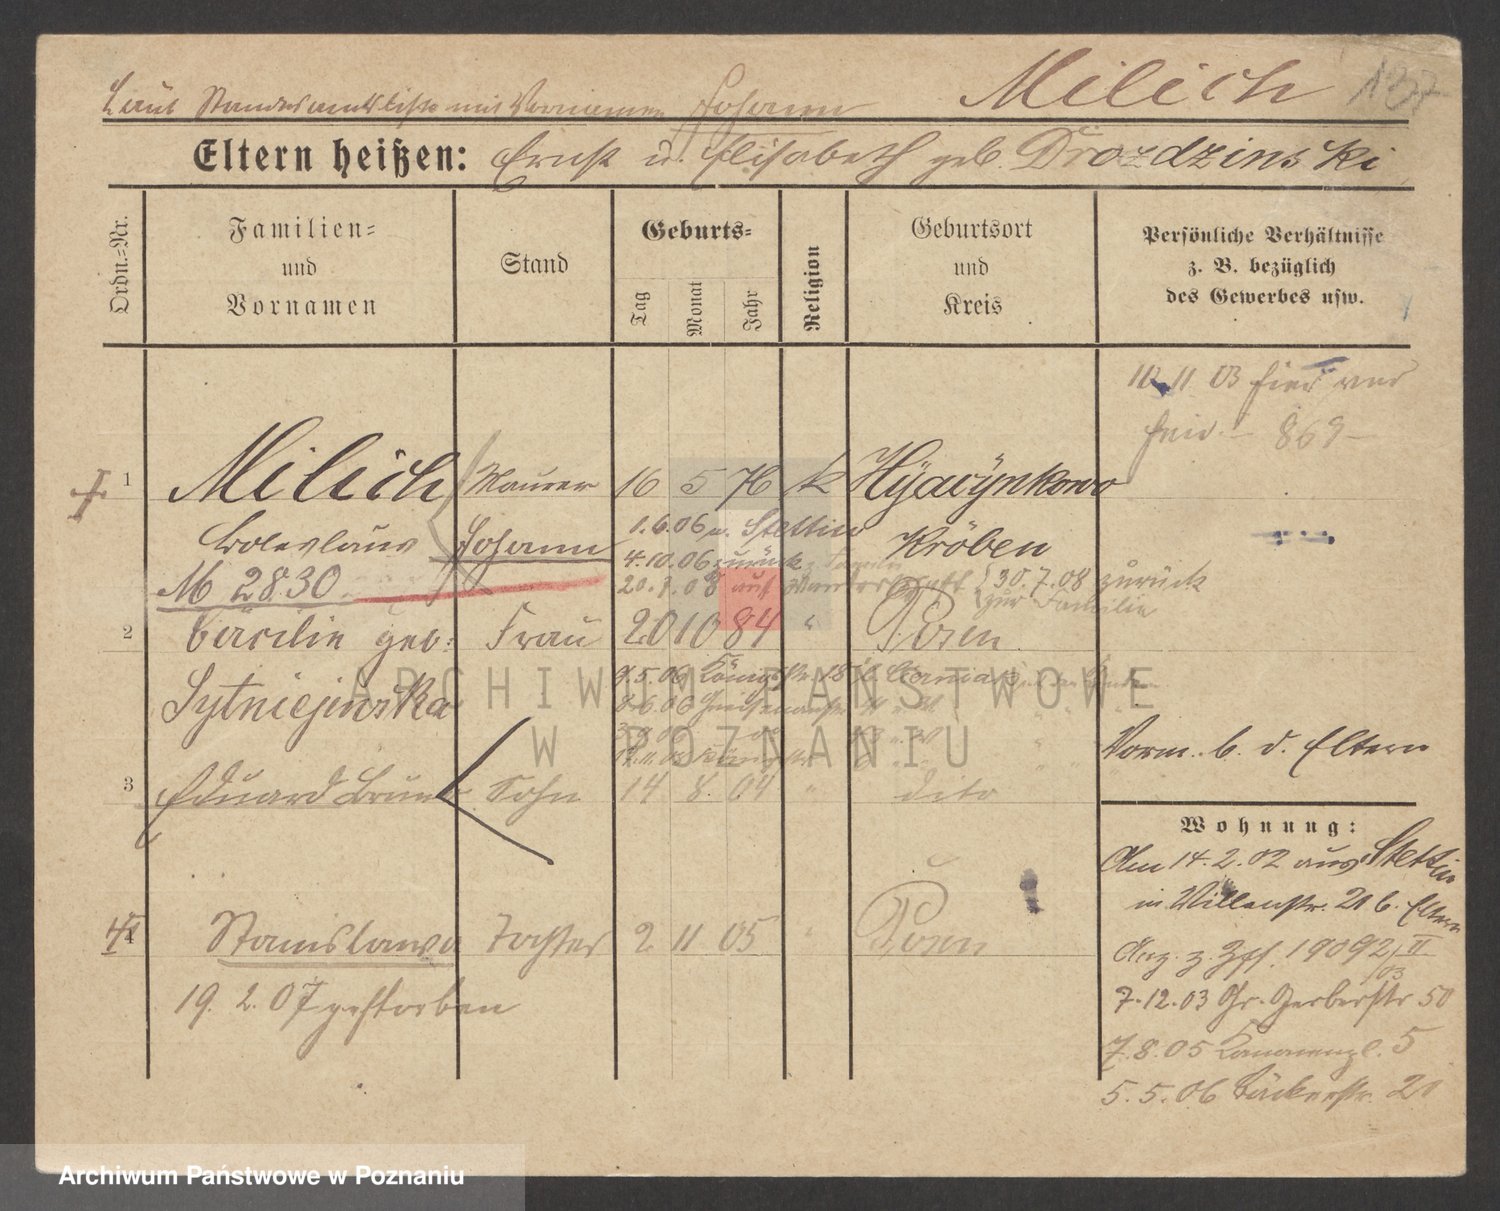 Milich 127
Laut Standesamtsliste mit Vornamen Johann
Eltern heißen: Ernst u. Elisabeth geb. Drozdzinski
Ordn.-Nr.
Familien-
und
Vornamen
Stand
Geburts-
Tag
Monat
Jahr
Religion
Geburtsort
und
Kreis
Persönliche Verhältnisse
z. B. bezüglich
des Gewerbes usw.
11 03
869
1 Milich Maurer 16 5 76 k Hyacynkowo
Boleslaus Johann Kröben
1.6.06 n. Stettin
4.10.06 zurück z. Familie
M 28.30
20.7.08 auf Wanderschaft 30.7.08 zurück
zur Familie
2 Cäcilie geb. Frau 20 10 84 " Posen
Sytniejewska
9.5.06 Königstr. 18
ARCHIWUM PAŃSTWOWE
W POZNANIU
Vorm. b. d. Eltern
3 Eduard Bruno Sohn 14 8. 04 " dito
Wohnung:
Am 14.2.02 aus Stettin
in Villenstr. 20 b. Eltern
4 Stanislawa Tochter 2 11 05 " Posen
19. 2. 07 gestorben
19092 II
03
7.12.03 Gr. Gerberstr 50
7.8.05 Kanonenpl. 5
5.5.06 Bäckerstr. 20
Archiwum Państwowe w Poznaniu